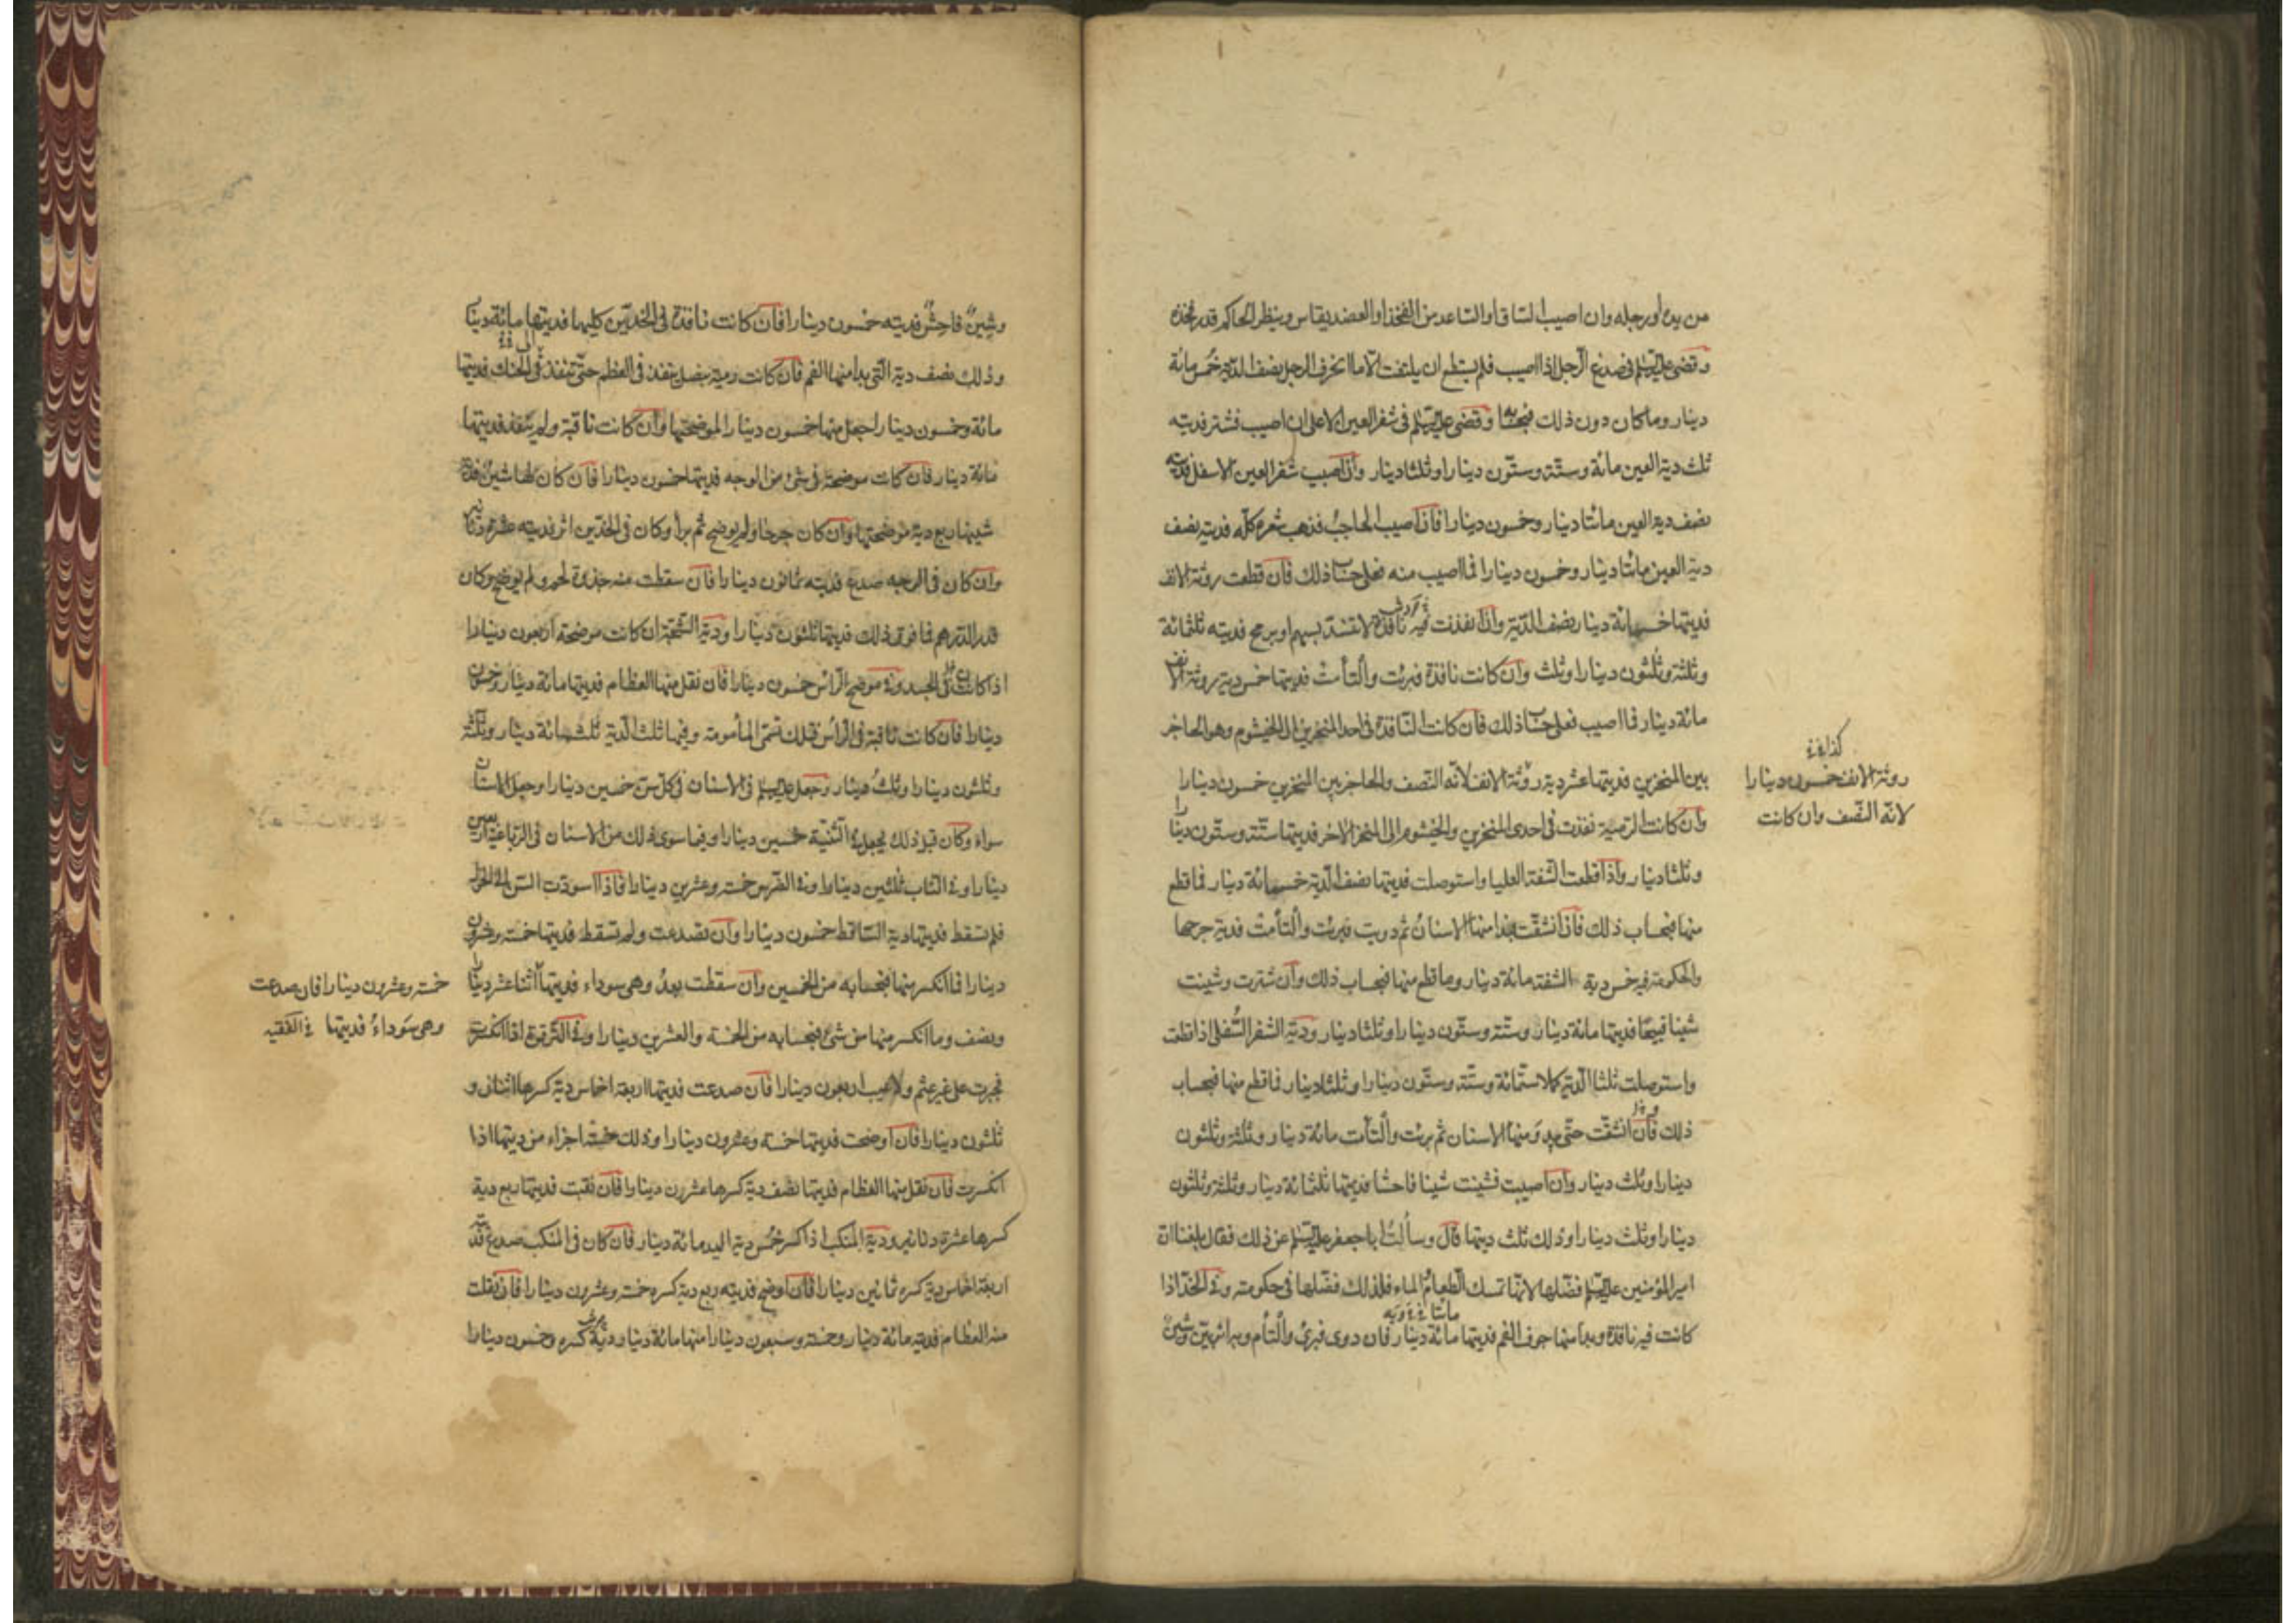 من يده أو رجله وان اصيب الساق أو الساعد من الفخذ او العضد يقاس وينظر الحاكم قدر فخذه
وقضى عليه السلم فى صدغ الرجل اذا اصيب فلم يستطع ان يلتفت الا ما انحرف الرجل نصف الدية خمس مائة
دينار وما كان دون ذلك فبحسابه وقضى عليه السلم فى شفر العين الاعلى ان اصيب فشتر فديته
ثلث دية العين مائة وستة وستون دينارا وثلثا دينار وان اصيب شفر العين الاسفل فديته
نصف دية العين مائتا دينار وخمسون دينارا فان اصيب الحاجب فذهب شعره كله فديته نصف
دية العين مائتا دينار وخمسون دينارا فما اصيب منه فعلى حساب ذلك فان قطعت روثة الانف
فديتها خمسمائة دينار نصف الدية واذا نفذت فيه نافذة لا تنسد بسهم او برمح فديته ثلثمائة
وثلثة وثلثون دينارا وثلث وان كانت نافذة فبرئت والتأمت فديتها خمس دية روثة الانف
مائة دينار فما اصيب فعلى حساب ذلك فان كانت النافذة فى احد المنخرين الى الخيشوم وهو الحاجز
بين المنخرين فديتها عشر دية روثة الانف لانه النصف والحاجز بين المنخرين خمسون دينارا
كذا فى
روثة الانف خمسون دينارا
لانه النصف وان كانت
وان كانت الرمية نفذت فى احدى المنخرين والخيشوم الى المنخر الاخر فديتها ستة وستون دينارا
وثلثا دينار واذا قطعت الشفة العليا واستوصلت فديتها نصف الدية خمسمائة دينار فما قطع
منها فبحساب ذلك فان انشقت فبدا منها الاسنان ثم دويت فبرئت والتأمت فدية جرحها
والحكومة فيه خمس دية الشفة مائة دينار وما قطع منها فبحساب ذلك وان شترت وشينت
شينا قبيحا فديتها مائة دينار وستة وستون دينارا وثلثا دينار ودية الشفر السفلى اذا قطعت
واستوصلت ثلثا الدية كملا ستمائة وستة وستون دينارا وثلثا دينار فما قطع منها فبحساب
ذلك فان انشقت حتى يبدو منها الاسنان ثم برئت والتأمت مائة دينار وثلثة وثلثون
دينارا وثلث دينار وان اصيبت فشينت شينا فاحشا فديتها ثلثمائة دينار وثلثة وثلثون
دينارا وثلث دينارا وذلك ثلث ديتها قال وسألت ابا جعفر عليه السلم عن ذلك فقال بلغنا ان
امير المؤمنين عليه السلم فضلها لانها تمسك الطعام والماء فلذلك فضلها فى حكومته وفى الخد اذا
مائتا
كانت فيه نافذة وبدا منها جوف الفم فديتها مائة دينار فان دوى فبرئ والتأم وبه اثر بين وشين
وشين فاحش فديته خمسون دينارا فان كانت نافذة فى الخدين كليهما فديتها مائة دينار
وذلك نصف دية التى بدا منها الفم فان كانت رمية بنصل ينفذ فى العظم حتى تنفذ فى الحنك فديتها
مائة وخمسون دينارا جعل منها خمسون دينارا لموضحتها وان كانت ثاقبة ولم ينفذ فديتها
مائة دينار فان كانت موضحة فى شئ من الوجه فديتها خمسون دينارا فان كان لها شين فدية
شينها ربع دية موضحتها وان كان جرحا ولم يوضح ثم برأ وكان فى الخدين اثر فديته عشرة دنانير
وان كان فى الوجه صدع فديته ثمانون دينارا فان سقطت منه جذوة لحم ولم يوضح وكان
قدر الدرهم فما فوق ذلك فديتها ثلثون دينارا ودية الشجة ان كانت موضحة اربعون دينارا
اذا كانت فى الجسد وفى موضح الرأس خمسون دينارا فان نقل منها العظام فديتها مائة دينار وخمسون
دينارا فان كانت ثاقبة فى الرأس فتلك تسمى المأمومة وفيها ثلث الدية ثلثمائة دينار وثلثة
وثلثون دينارا وثلث دينار وجعل عليه السلم فى الاسنان فى كل سن خمسين دينارا وجعل الاسنان
سواء وكان قبل ذلك يجعل فى الثنية خمسين دينارا وفيما سوى ذلك من الاسنان فى الرباعية اربعين
دينارا وفى الناب ثلثين دينارا وفى الضرس خمسة وعشرين دينارا فاذا اسودت السن الى الحول
فلم تسقط فديتها دية الساقط خمسون دينارا وان تصدعت ولم تسقط فديتها خمسة وعشرون
دينارا فما انكسر منها فبحسابه من الخمسين وان سقطت بعد وهى سوداء فديتها اثنا عشر دينارا
خمسة وعشرون دينارا فان صدعت
وهى سوداء فديتها فى الفقيه
ونصف وما انكسر منها من شئ فبحسابه من الخمسة والعشرين دينارا وفى الترقوة اذا انكسرت
فجبرت على غير عثم ولا عيب اربعون دينارا فان صدعت فديتها اربعة اخماس دية كسرها اثنان و
ثلثون دينارا فان اوضحت فديتها خمسة وعشرون دينارا وذلك خمسة اجزاء من ديتها اذا
انكسرت فان نقل منها العظام فديتها نصف دية كسرها عشرون دينارا فان نقبت فديتها ربع دية
كسرها عشرة دنانير ودية المنكب اذا كسر خمس دية اليد مائة دينار فان كان فى المنكب صدع فديته
اربعة اخماس دية كسره ثمانين دينارا فان اوضح فديته ربع دية كسره خمسة وعشرون دينارا فان نقلت
منه العظام فديته مائة دينار وخمسة وسبعون دينارا منها مائة دينار دية كسره وخمسون دينارا